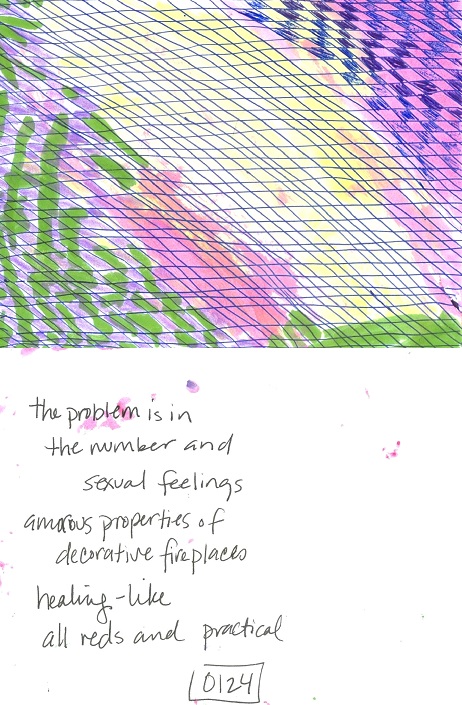 the problem is in
the number and
sexual feelings
amorous properties of
decorative fireplaces
healing-like
all reds and practical
0124